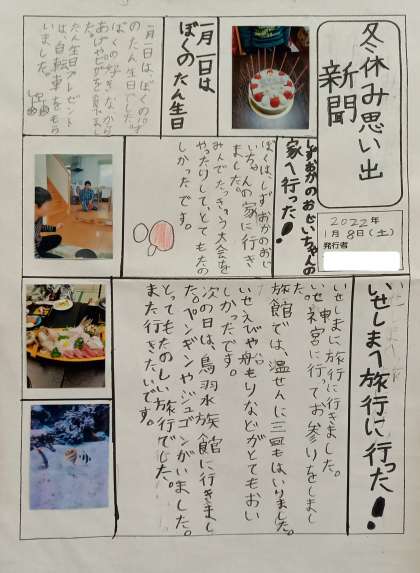 冬休み思い出
新聞
2022年
1月8日(土)
発行者
一月一日は
ぼくのたん生日
一月一日は、ぼくの
のたん生日でした。
ぼくの好きなから
あげやピザを食べまし
た。
たん生日プレゼント
は、自転車をもら
いました。
しずおかのおじいちゃんの
家へ行った!
ぼくは、しずおかのおじ
いちゃんの家に行き
ました。
みんなでたっきゅう大会を
やったりして、とてもたの
しかったです。
いせしまへ旅行に行った!
いせしまに旅行に行きました。
いせ神宮に行ってお参りをしまし
た。
旅館では、温せんに三回もはいりました。
いせえびや舟もりなどがとてもおい
しかったです。
次の日は、鳥羽水族館に行きまし
た。ペンギンやジュゴンがいました。
とってもたのしい旅行でした。
また行きたいです。